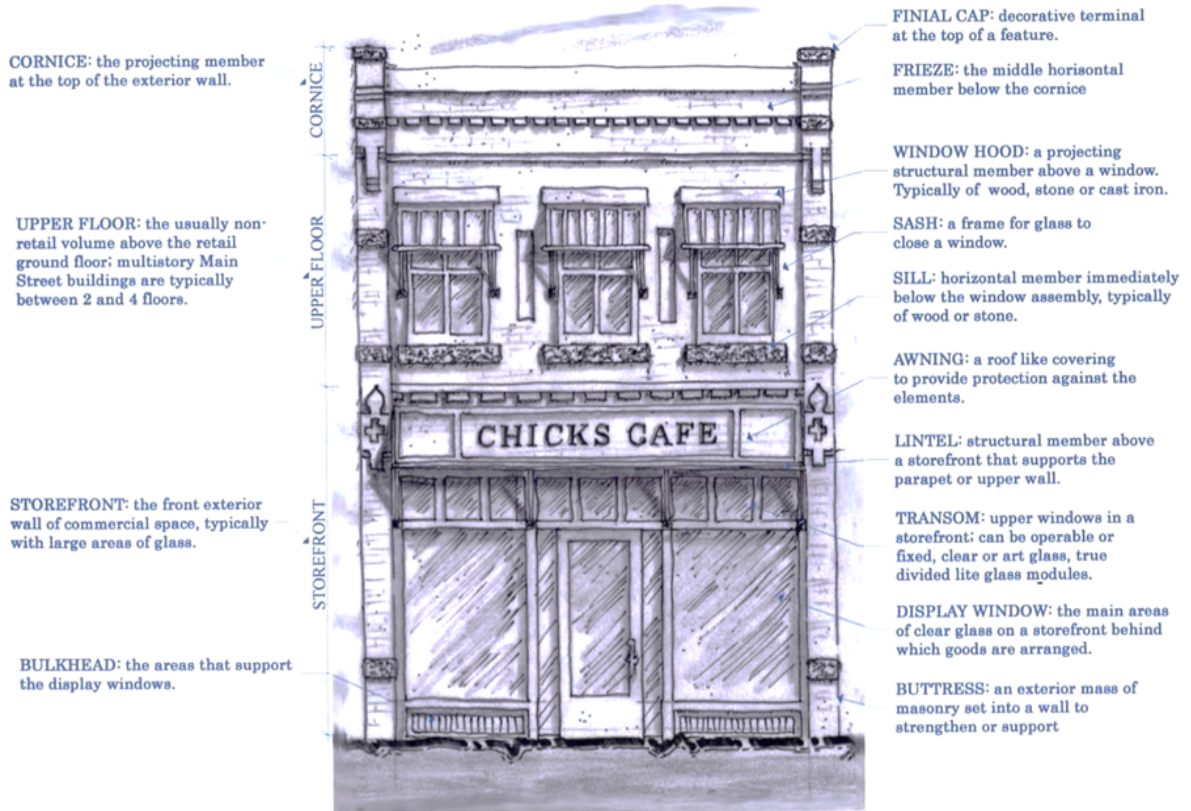 CORNICE: the projecting member
at the top of the exterior wall.
UPPER FLOOR: the usually non-
retail volume above the retail
ground floor; multistory Main
Street buildings are typically
between 2 and 4 floors.
STOREFRONT: the front exterior
wall of commercial space, typically
with large areas of glass.
BULKHEAD: the areas that support
the display windows.
CORNICE
UPPER FLOOR
STOREFRONT
CHICKS CAFE
FINIAL CAP: decorative terminal
at the top of a feature.
FRIEZE: the middle horisontal
member below the cornice
WINDOW HOOD: a projecting
structural member above a window.
Typically of wood, stone or cast iron.
SASH: a frame for glass to
close a window.
SILL: horizontal member immediately
below the window assembly, typically
of wood or stone.
AWNING: a roof like covering
to provide protection against the
elements.
LINTEL: structural member above
a storefront that supports the
parapet or upper wall.
TRANSOM: upper windows in a
storefront; can be operable or
fixed, clear or art glass, true
divided lite glass modules.
DISPLAY WINDOW: the main areas
of clear glass on a storefront behind
which goods are arranged.
BUTTRESS: an exterior mass of
masonry set into a wall to
strengthen or support